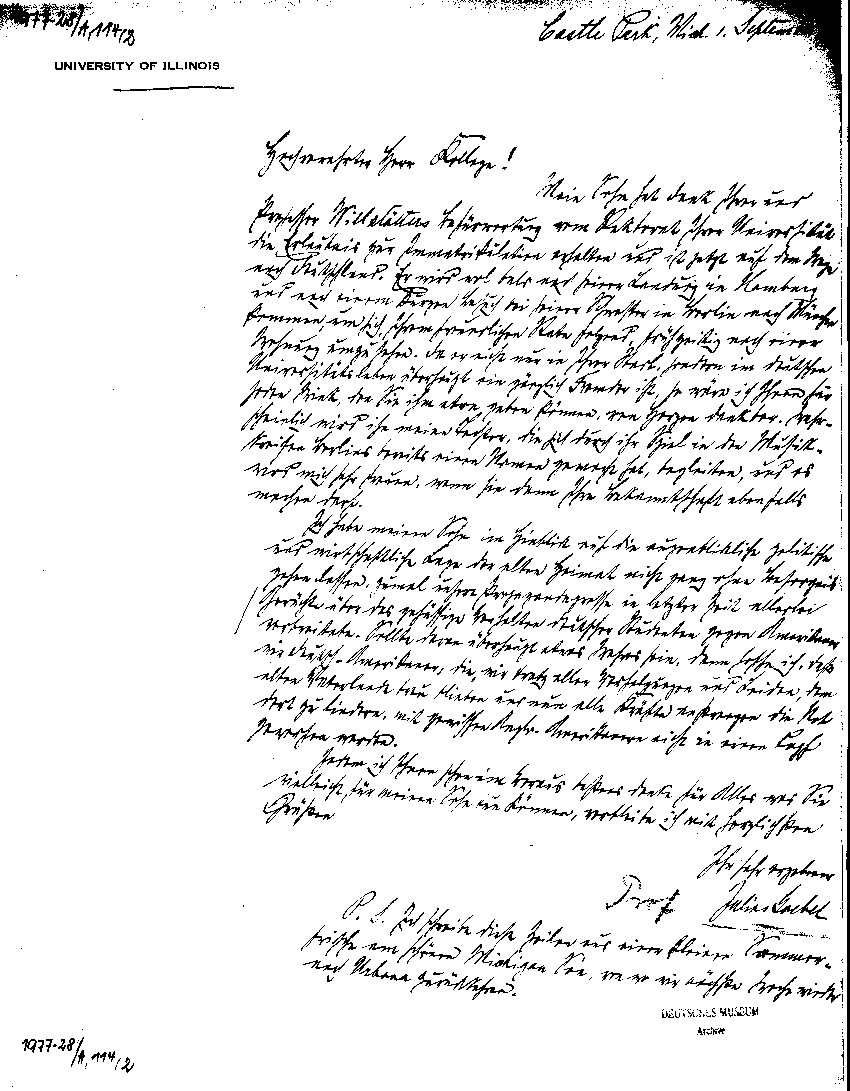 1977-28/A,114/2
Castle Park, Mich. 1. Septem
UNIVERSITY OF ILLINOIS
Hochverehrter Herr Kollege!
Mein Sohn hat dank Ihrer und
Professor Willstätters Befürwortung vom Rektorat Ihrer Universität
die Erlaubnis zur Immatrikulation erhalten und ist jetzt auf dem Wege
nach Deutschland. Er wird wol bald nach seiner Landung in Hamburg
und nach einem kurzen Besuch bei seiner Schwester in Berlin nach München
kommen um sich, Ihrem freundlichen Rate folgend, frühzeitig nach einer
Wohnung umzusehen. Da er nicht nur in Ihrer Stadt, sondern im deutschen
Universitätsleben überhaupt ein gänzlich Fremder ist, so wäre ich Ihnen für
jeden Wink, den Sie ihm etwa geben können, von Herzen dankbar. Wahr-
scheinlich wird ihn meine Tochter, die sich durch ihr Spiel in den Musik-
kreisen Berlins bereits einen Namen gemacht hat, begleiten, und es
wird mich sehr freuen, wenn sie dann Ihre Bekanntschaft ebenfalls
machen darf.
Ich habe meinen Sohn im Hinblick auf die augenblickliche politische
und wirtschaftliche Lage der alten Heimat nicht ganz ohne Besorgnis
gehen lassen, zumal unsere Propagandapresse in letzter Zeit allerlei
Gerüchte über das gehässige Verhalten deutscher Studenten gegen Amerikaner
verbreitete. Sollte daran überhaupt etwas Wahres sein, dann hoffe ich, daß
wir Deutsch-Amerikaner, die wir trotz aller Verfolgungen und Leiden, dem
alten Vaterlande treu blieben und nun alle Kräfte anstrengen die Not
dort zu lindern, mit gewissen Anglo-Amerikanern nicht in einen Topf
geworfen werden.
Indem ich Ihnen schon im Voraus bestens danke für Alles was Sie
vielleicht für meinen Sohn tun können, verbleibe ich mit herzlichsten
Grüßen
Ihr sehr ergebener
Prof. Julius Goebel
P. S. Ich schreibe diese Zeilen aus einer kleinen Sommer-
frische am schönen Michigan See, von wo wir nächste Woche wieder
nach Urbana zurückkehren.
DEUTSCHES MUSEUM
Archiv
1977-28/A,114/2